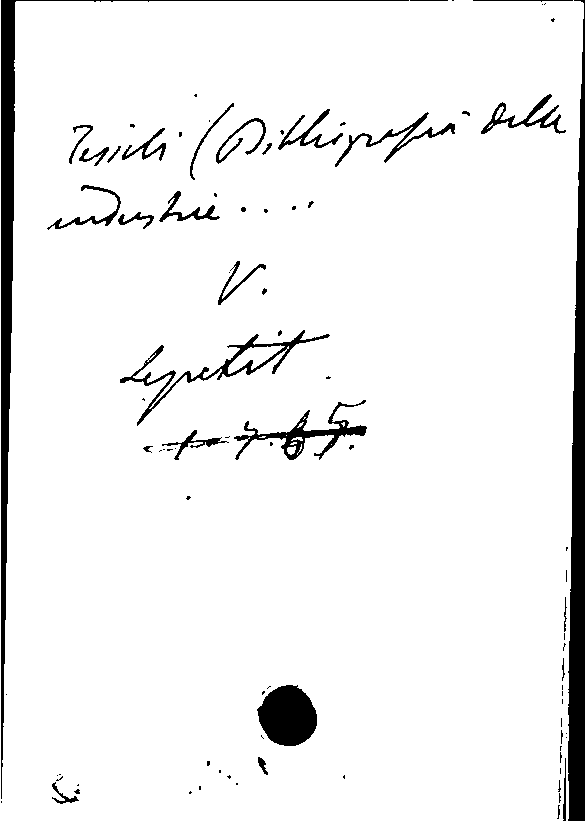 Tessili (Bibliografia delle
industrie ....
V.
Lepetit
1765.